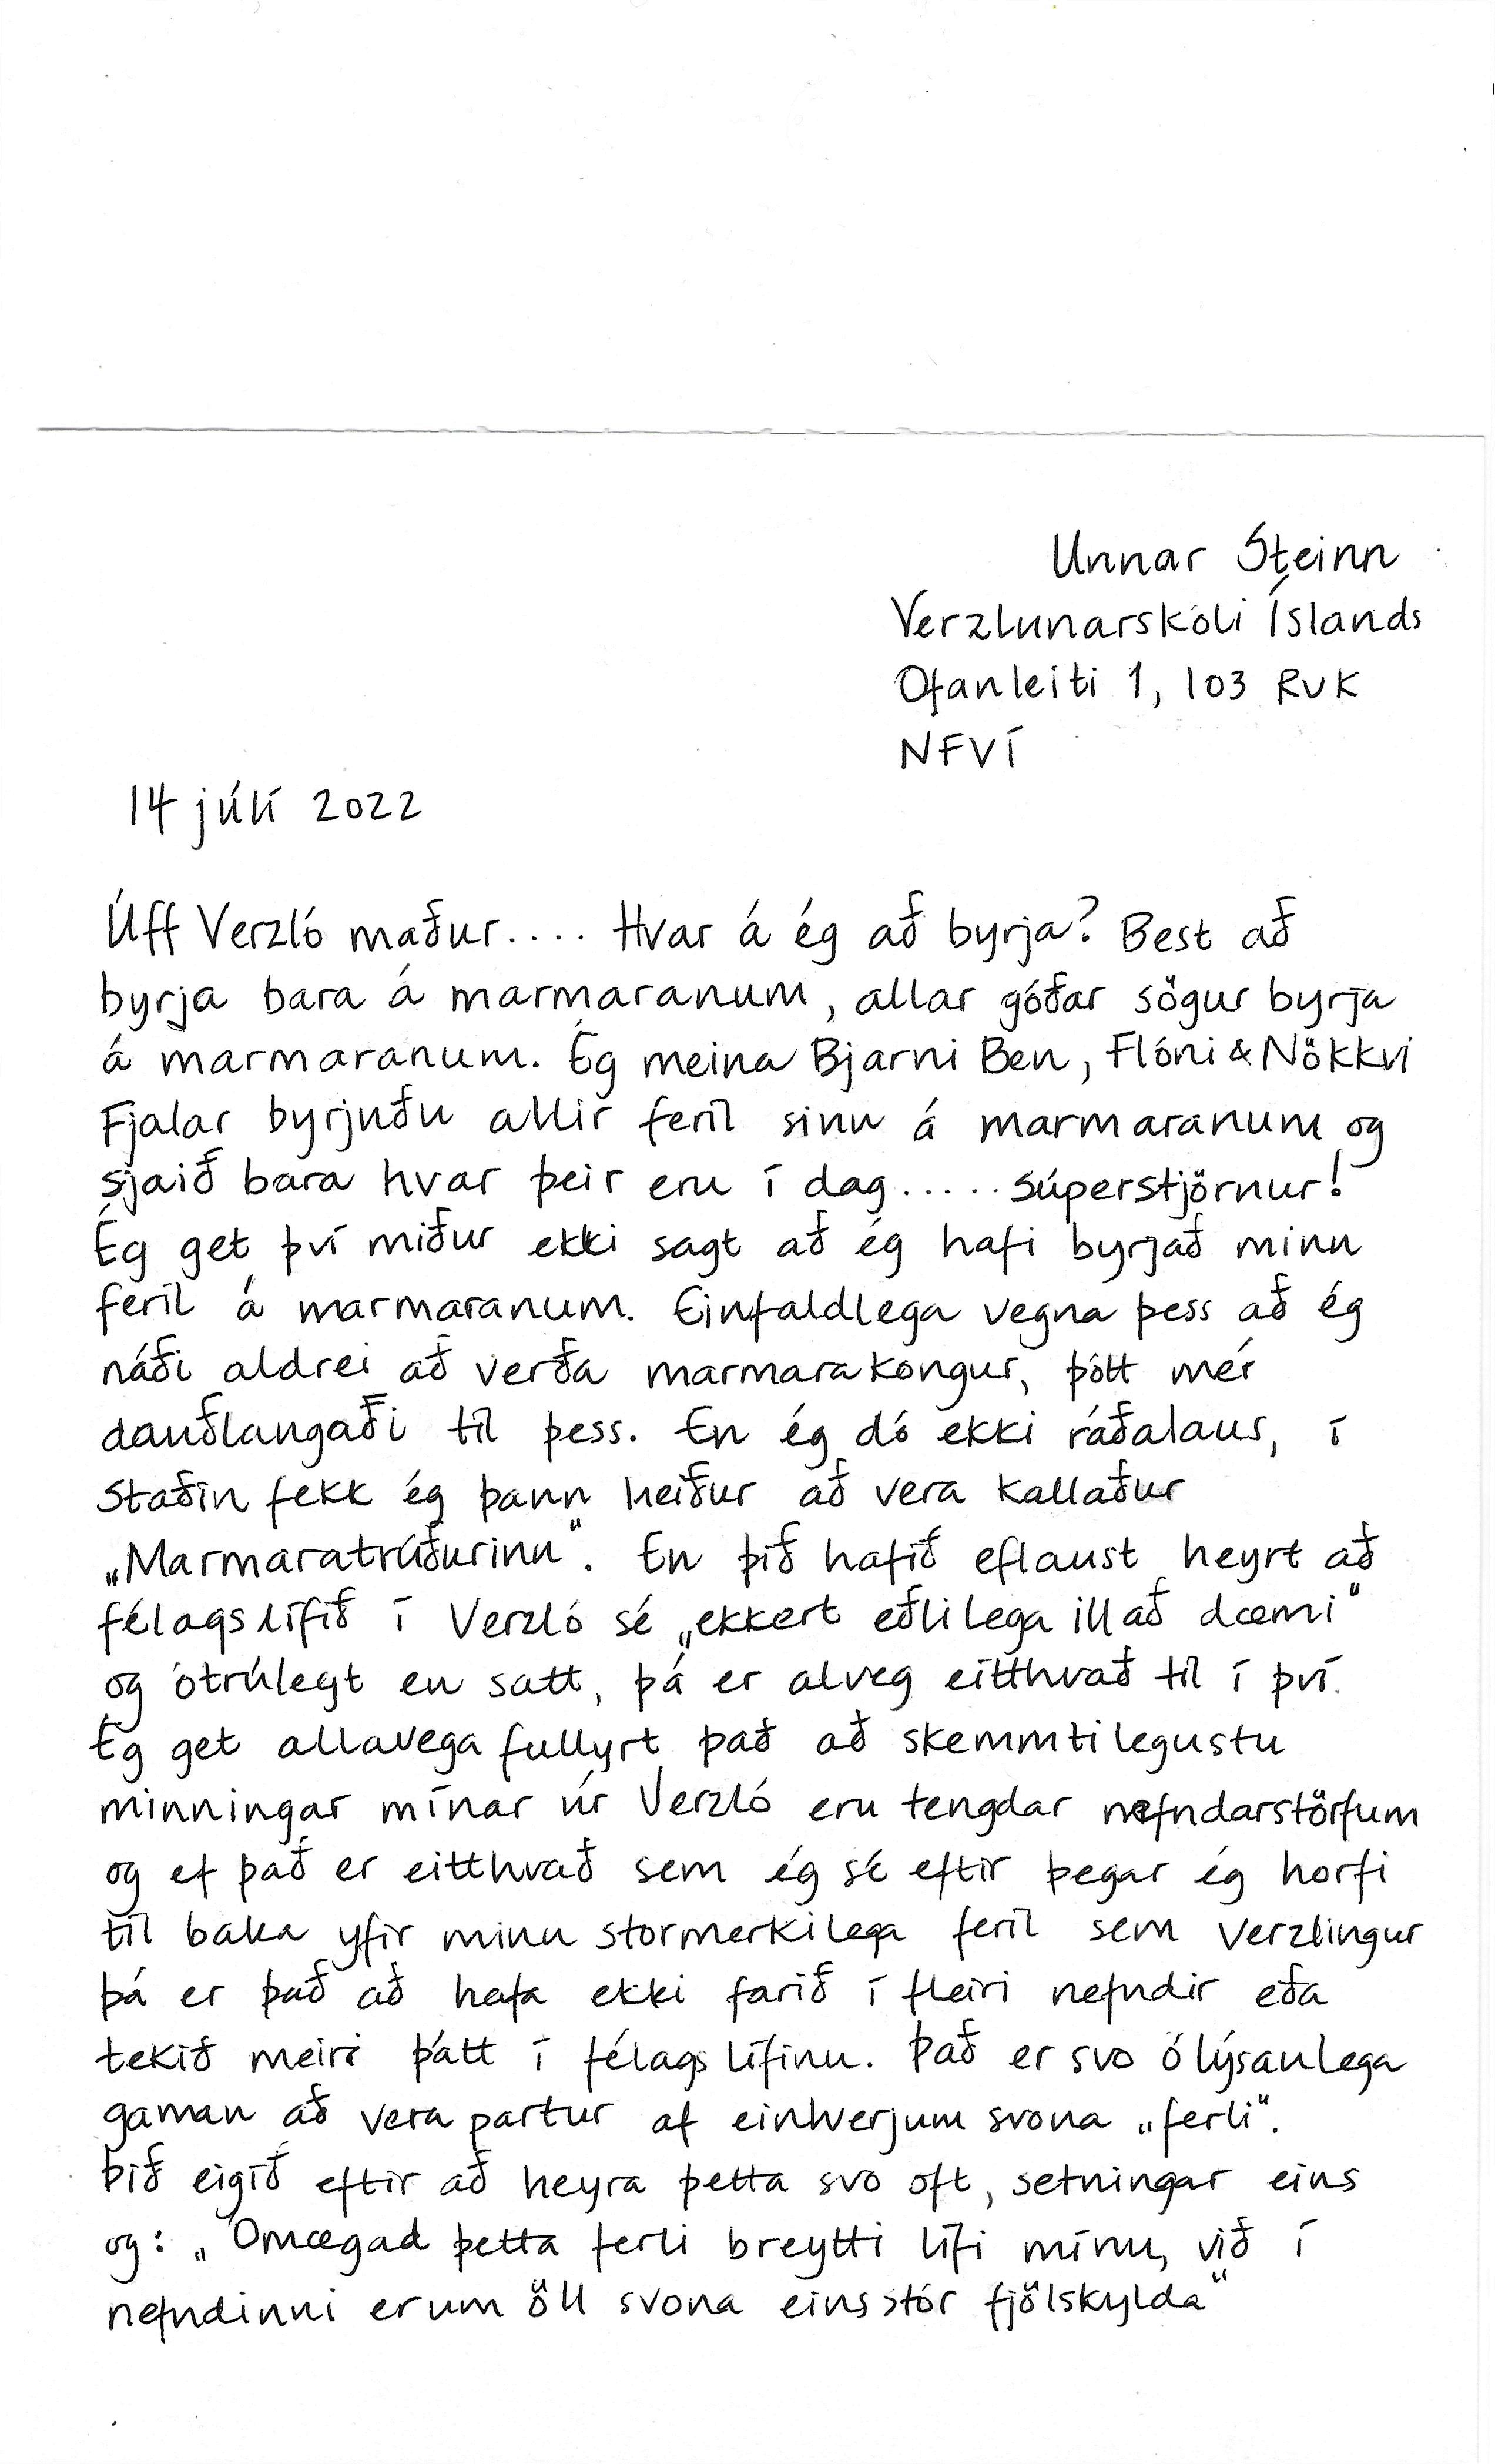 Unnar Steinn
Verzlunarskóli Íslands
Ofanleiti 1, 103 RVK
NFVÍ
14 júlí 2022
Úff Verzló maður.... Hvar á ég að byrja? Best að
byrja bara á marmaranum, allar góðar sögur byrja
á marmaranum. Ég meina Bjarni Ben, Flóni & Nökkvi
Fjalar byrjuðu allir feril sinn á marmaranum og
sjaið bara hvar þeir eru í dag..... súperstjörnur!
Ég get því miður ekki sagt að ég hafi byrjað minn
feril á marmaranum. Einfaldlega vegna þess að ég
náði aldrei að verða marmarakongur, þótt mér
dauðlangaði til þess. En ég dó ekki ráðalaus, í
staðin fekk ég þann heiður að vera kallaður
„Marmaratrúðurinn“. En þið hafið eflaust heyrt að
félagslífið í Verzló sé „ekkert eðlilega illað dæmi“
og ótrúlegt en satt, þá er alveg eitthvað til í því.
Ég get allavega fullyrt það að skemmtilegustu
minningar mínar úr Verzló eru tengdar nefndarstörfum
og ef það er eitthvað sem ég sé eftir þegar ég horfi
til baka yfir minn stormerkilega feril sem Verzlingur
þá er það að hafa ekki farið í fleiri nefndir eða
tekið meiri þátt í félagslífinu. Það er svo ólýsanlega
gaman að vera partur af einhverjum svona „ferli“.
Þið eigið eftir að heyra þetta svo oft, setningar eins
og: „Omægad þetta ferli breytti lífi mínu, við í
nefndinni erum öll svona eins stór fjölskylda“